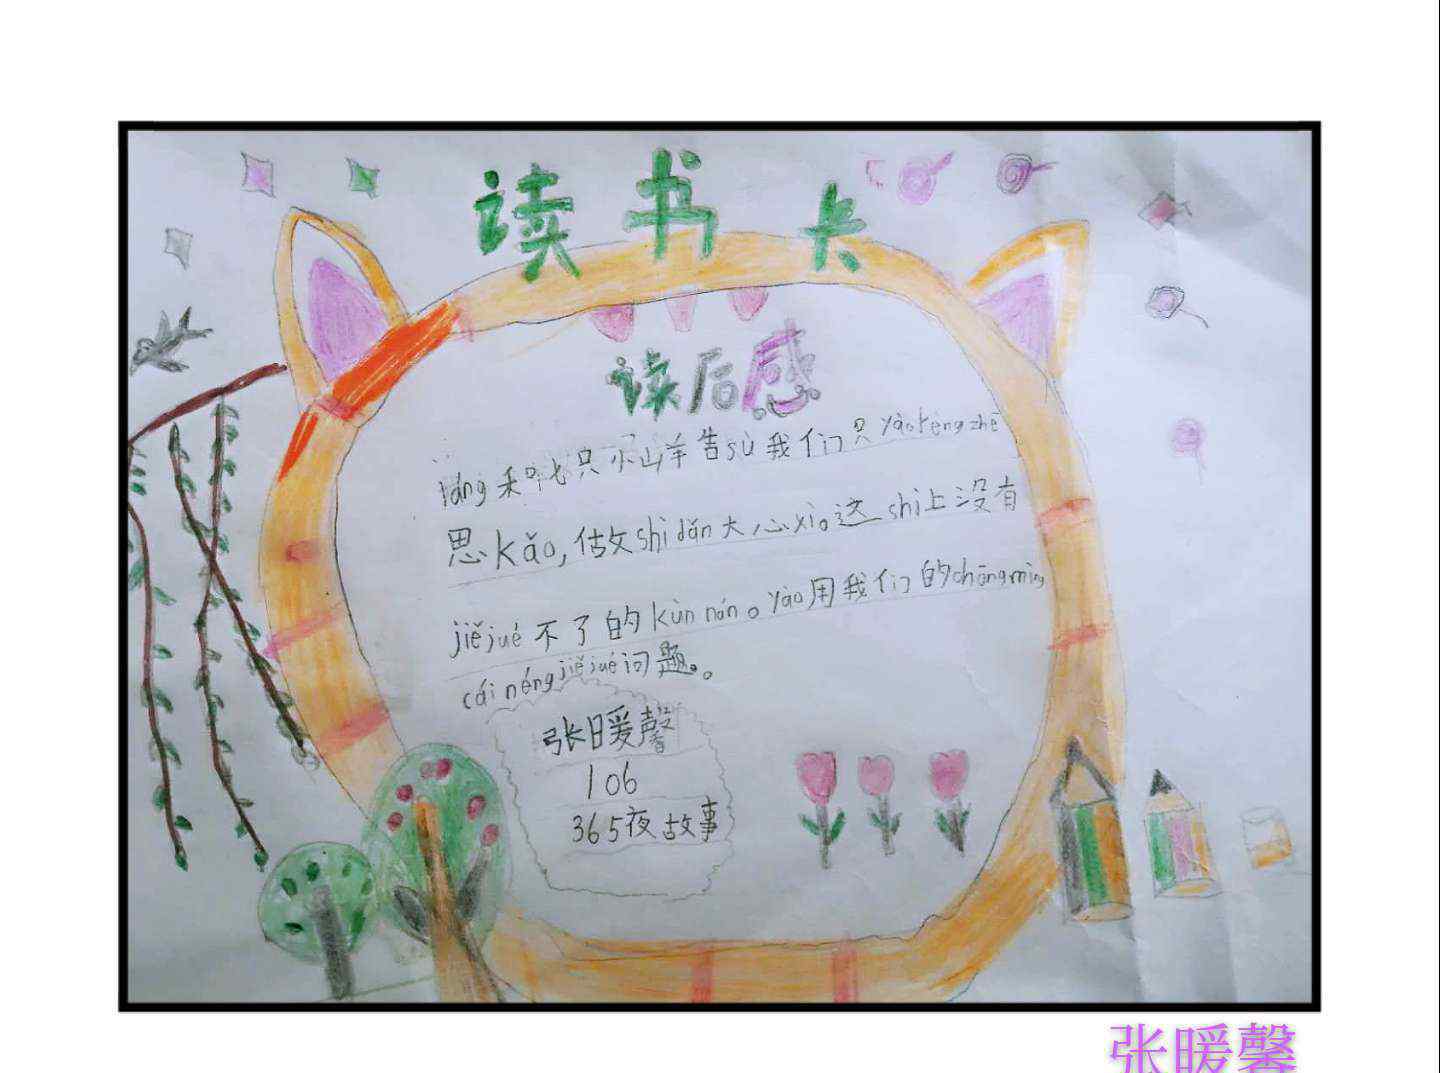 读书卡
读后感
láng和七只小山羊告sù我们只yàorèngzhē
思kǎo,估攵shì dǎn大心xì。这shì上没有
jiějué不了的kùn nán。yào用我们的chōngmíng
cái néng jiějué问题。
张暖馨
106
365夜故事
张暖馨